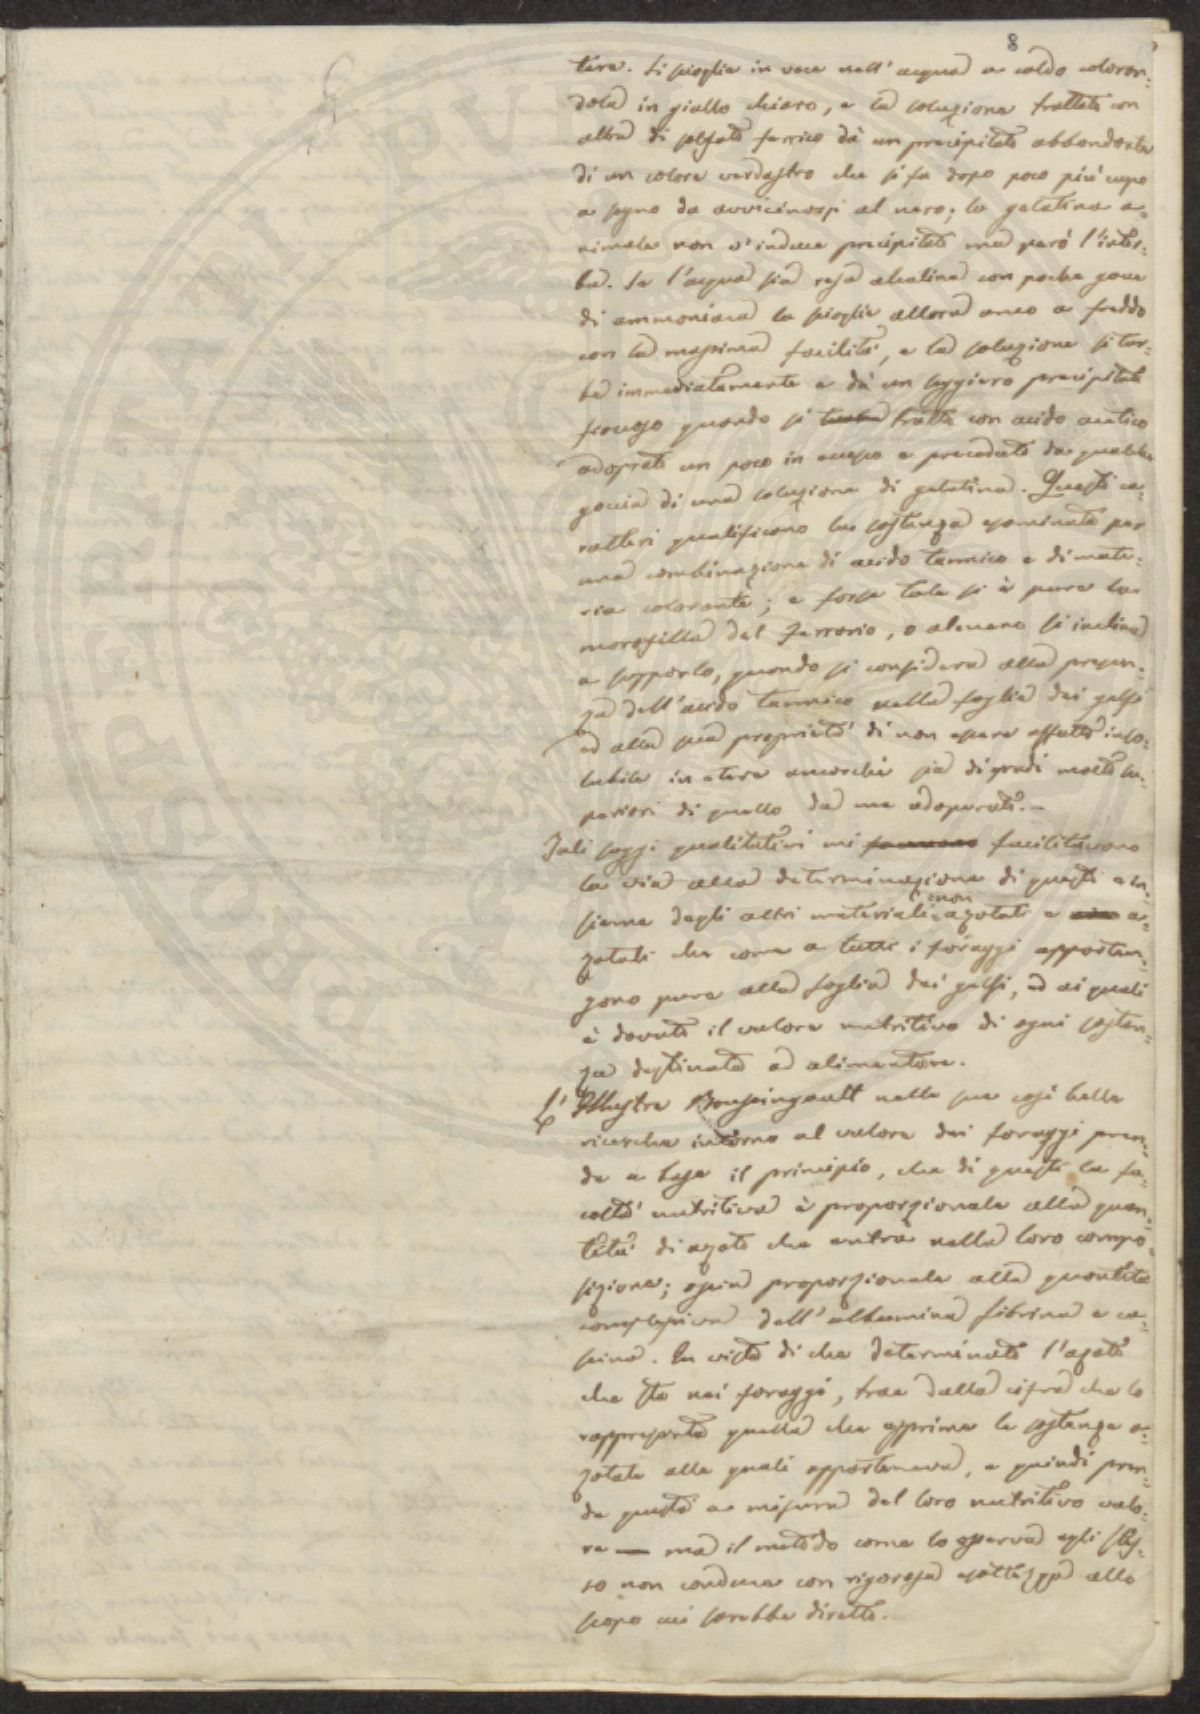 8
tere. Si scioglie in vece nell'acqua a caldo coloran-
dola in giallo chiaro, e la soluzione trattata con
altra di solfato ferrico dà un precipitato abbondante
di un colore verdastro che si fa dopo poco più cupo
a segno da avvicinarsi al nero; la gelatina a-
nimale non v'induce precipitato ma però l'intor-
ba. Se l'acqua sia resa alcalina con poche gocce
di ammoniaca la scioglie allora anco a freddo
con la massima facilità, e la soluzione si tor-
ba immediatamente e dà un leggiero precipitato
fioccoso quando si tratta con acido acetico
adoprato un poco in eccesso e preceduto da qualche
goccia di una soluzione di gelatina. Questi ca-
ratteri qualificano la sostanza esaminata per
una combinazione di acido tannico e di mate-
ria colorante; e forse tale si è pure la
morosilla del Ferrario, o almeno si inclina
a supporlo, quando si considera alla presen-
za dell'acido tannico nella foglia dei gelsi
ed alla sua proprietà di non essere affatto inso-
lubile in etere ancorchè sia di gradi molto su-
periori di quello da me adoperato.—
Tali saggi qualitativi mi facilitavano
la via alla determinazione di questi e in-
sieme degli altri materiali non azotati e a-
zotati che come a tutti i foraggi apparten-
gono pure alla foglia dei gelsi, ed ai quali
è dovuto il valore nutritivo di ogni sostan-
za destinata ad alimentare.
L'Illustre Boussingault nelle sue così belle
ricerche intorno al valore dei foraggi pren-
de a base il principio, che di questi la fa-
coltà nutritiva è proporzionale alla quan-
tità di azoto che entra nella loro compo-
sizione; ossia proporzionale alla quantità
complessiva dell'albumina fibrina e ca-
seina. In vista di che determinato l'azoto
che sta nei foraggi, trae dalla cifra che lo
rappresenta quella che esprime le sostanze a-
zotate alle quali apparteneva, e quindi pren-
de questa a misura del loro nutritivo valo-
re — ma il metodo come lo osserva egli stes-
so non conduce con rigorosa esattezza allo
scopo cui sarebbe diretto.—